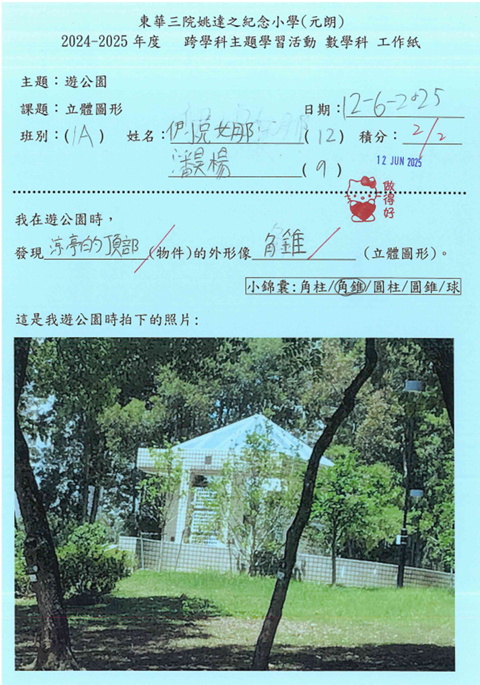 東華三院姚達之紀念小學(元朗)
2024-2025 年度 跨學科主題學習活動 數學科 工作紙
主題：遊公園
課題：立體圖形 日期：12-6-2025
班別：(1A) 姓名：們悅女那(12) 積分：2/2
潘昊楊(9) 12 JUN 2025
做得好
我在遊公園時，
發現涼亭的頂部(物件)的外形像角錐(立體圖形)。
小錦囊：角柱/角錐/圓柱/圓錐/球
這是我遊公園時拍下的照片：